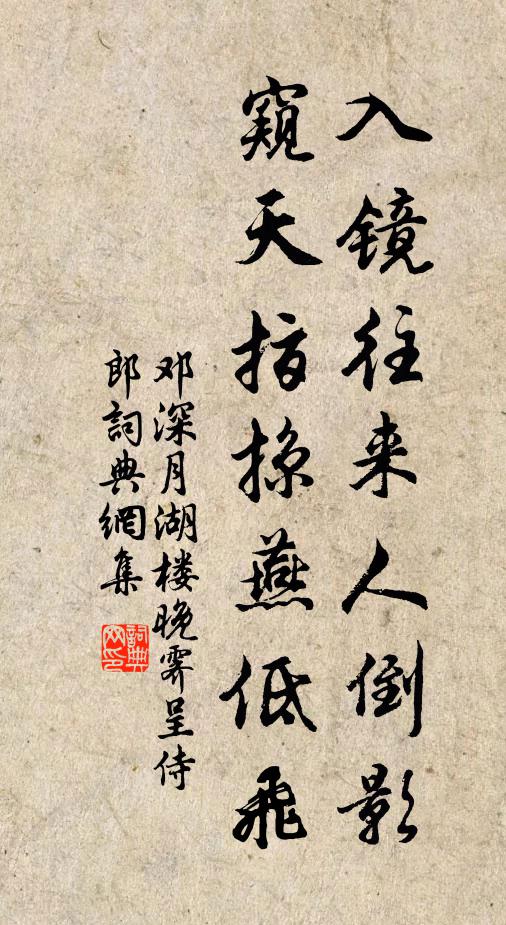 入镜往来人倒影
窥天指掠燕低飞
邓深月湖楼晚霁呈侍
郎詞典網集
詞典网印